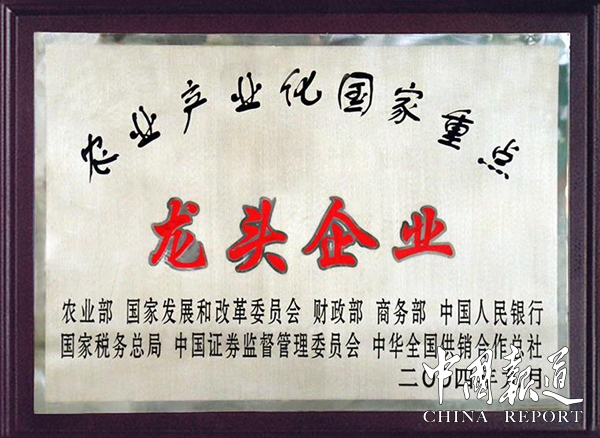 农业产业化国家重点
龙头企业
农业部 国家发展和改革委员会 财政部 商务部 中国人民银行
国家税务总局 中国证券监督管理委员会 中华全国供销合作总社
二〇〇四年 月
中国报道
CHINA REPORT